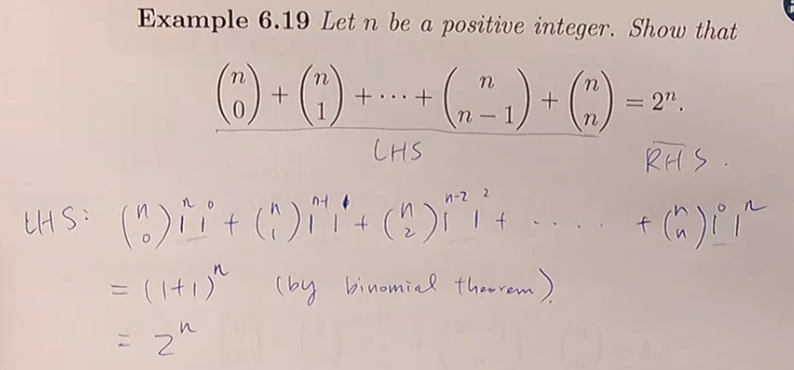 Example 6.19 Let n be a positive integer. Show that
(n 0) + (n 1) + ··· + (n n − 1) + (n n) = 2ⁿ.
LHS RHS.
LHS: (n 0)1ⁿ1⁰ + (n 1)1ⁿ⁻¹1¹ + (n 2)1ⁿ⁻²1² + ···· + (n n)1⁰1ⁿ
= (1+1)ⁿ (by binomial theorem).
= 2ⁿ